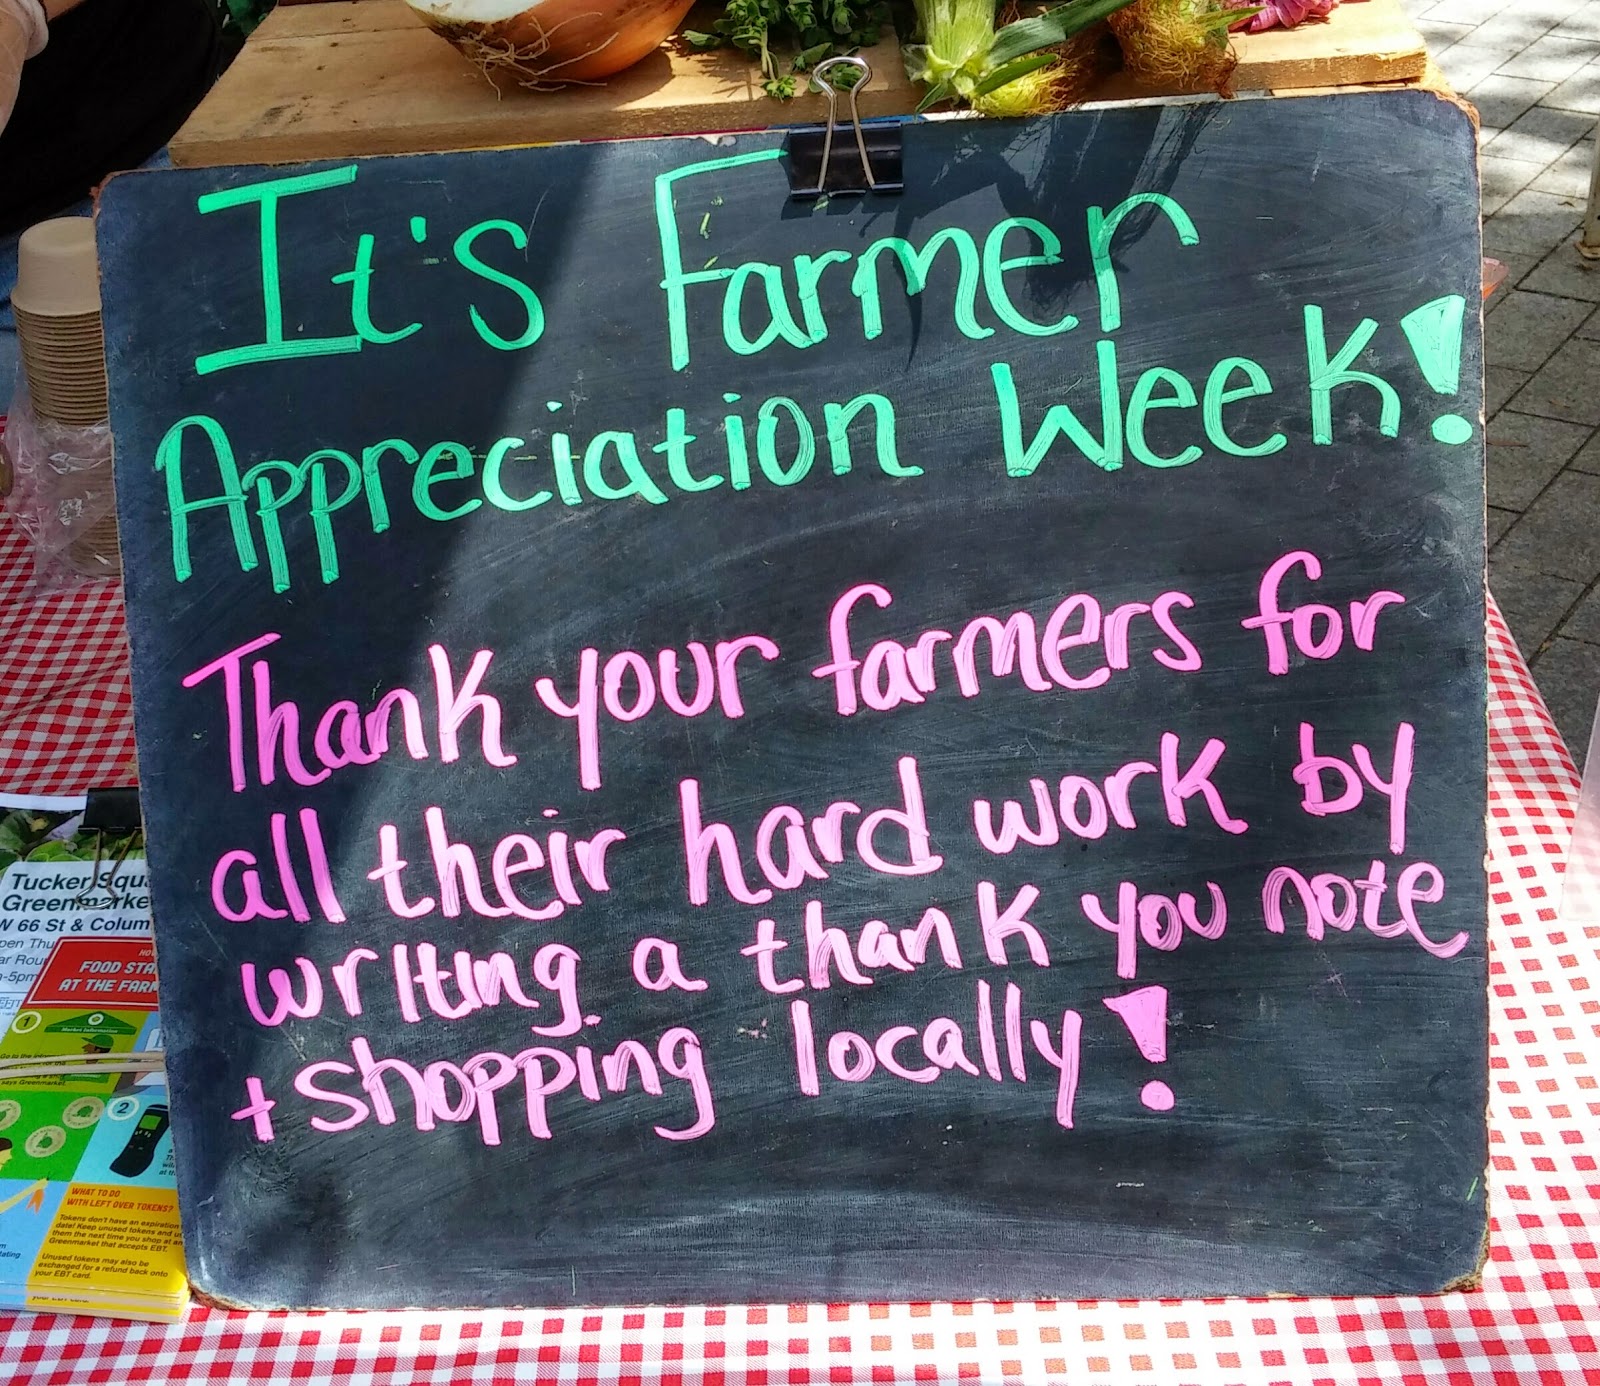 It's Farmer
Appreciation Week!
Thank your farmers for
all their hard work by
writing a thank you note
+ shopping locally!
Tucker Squa
Greenmarke
W 66 St & Colum
pen Thu
ar Rou
-5pm
FOOD STA
AT THE FARM
1
Market Information
says Greenmarket.
2
WHAT TO DO
WITH LEFT OVER TOKENS?
Tokens don't have an expiration
date! Keep unused tokens and u
them the next time you shop at a
Greenmarket that accepts EBT.
Unused tokens may also be
exchanged for a refund back onto
your EBT card.